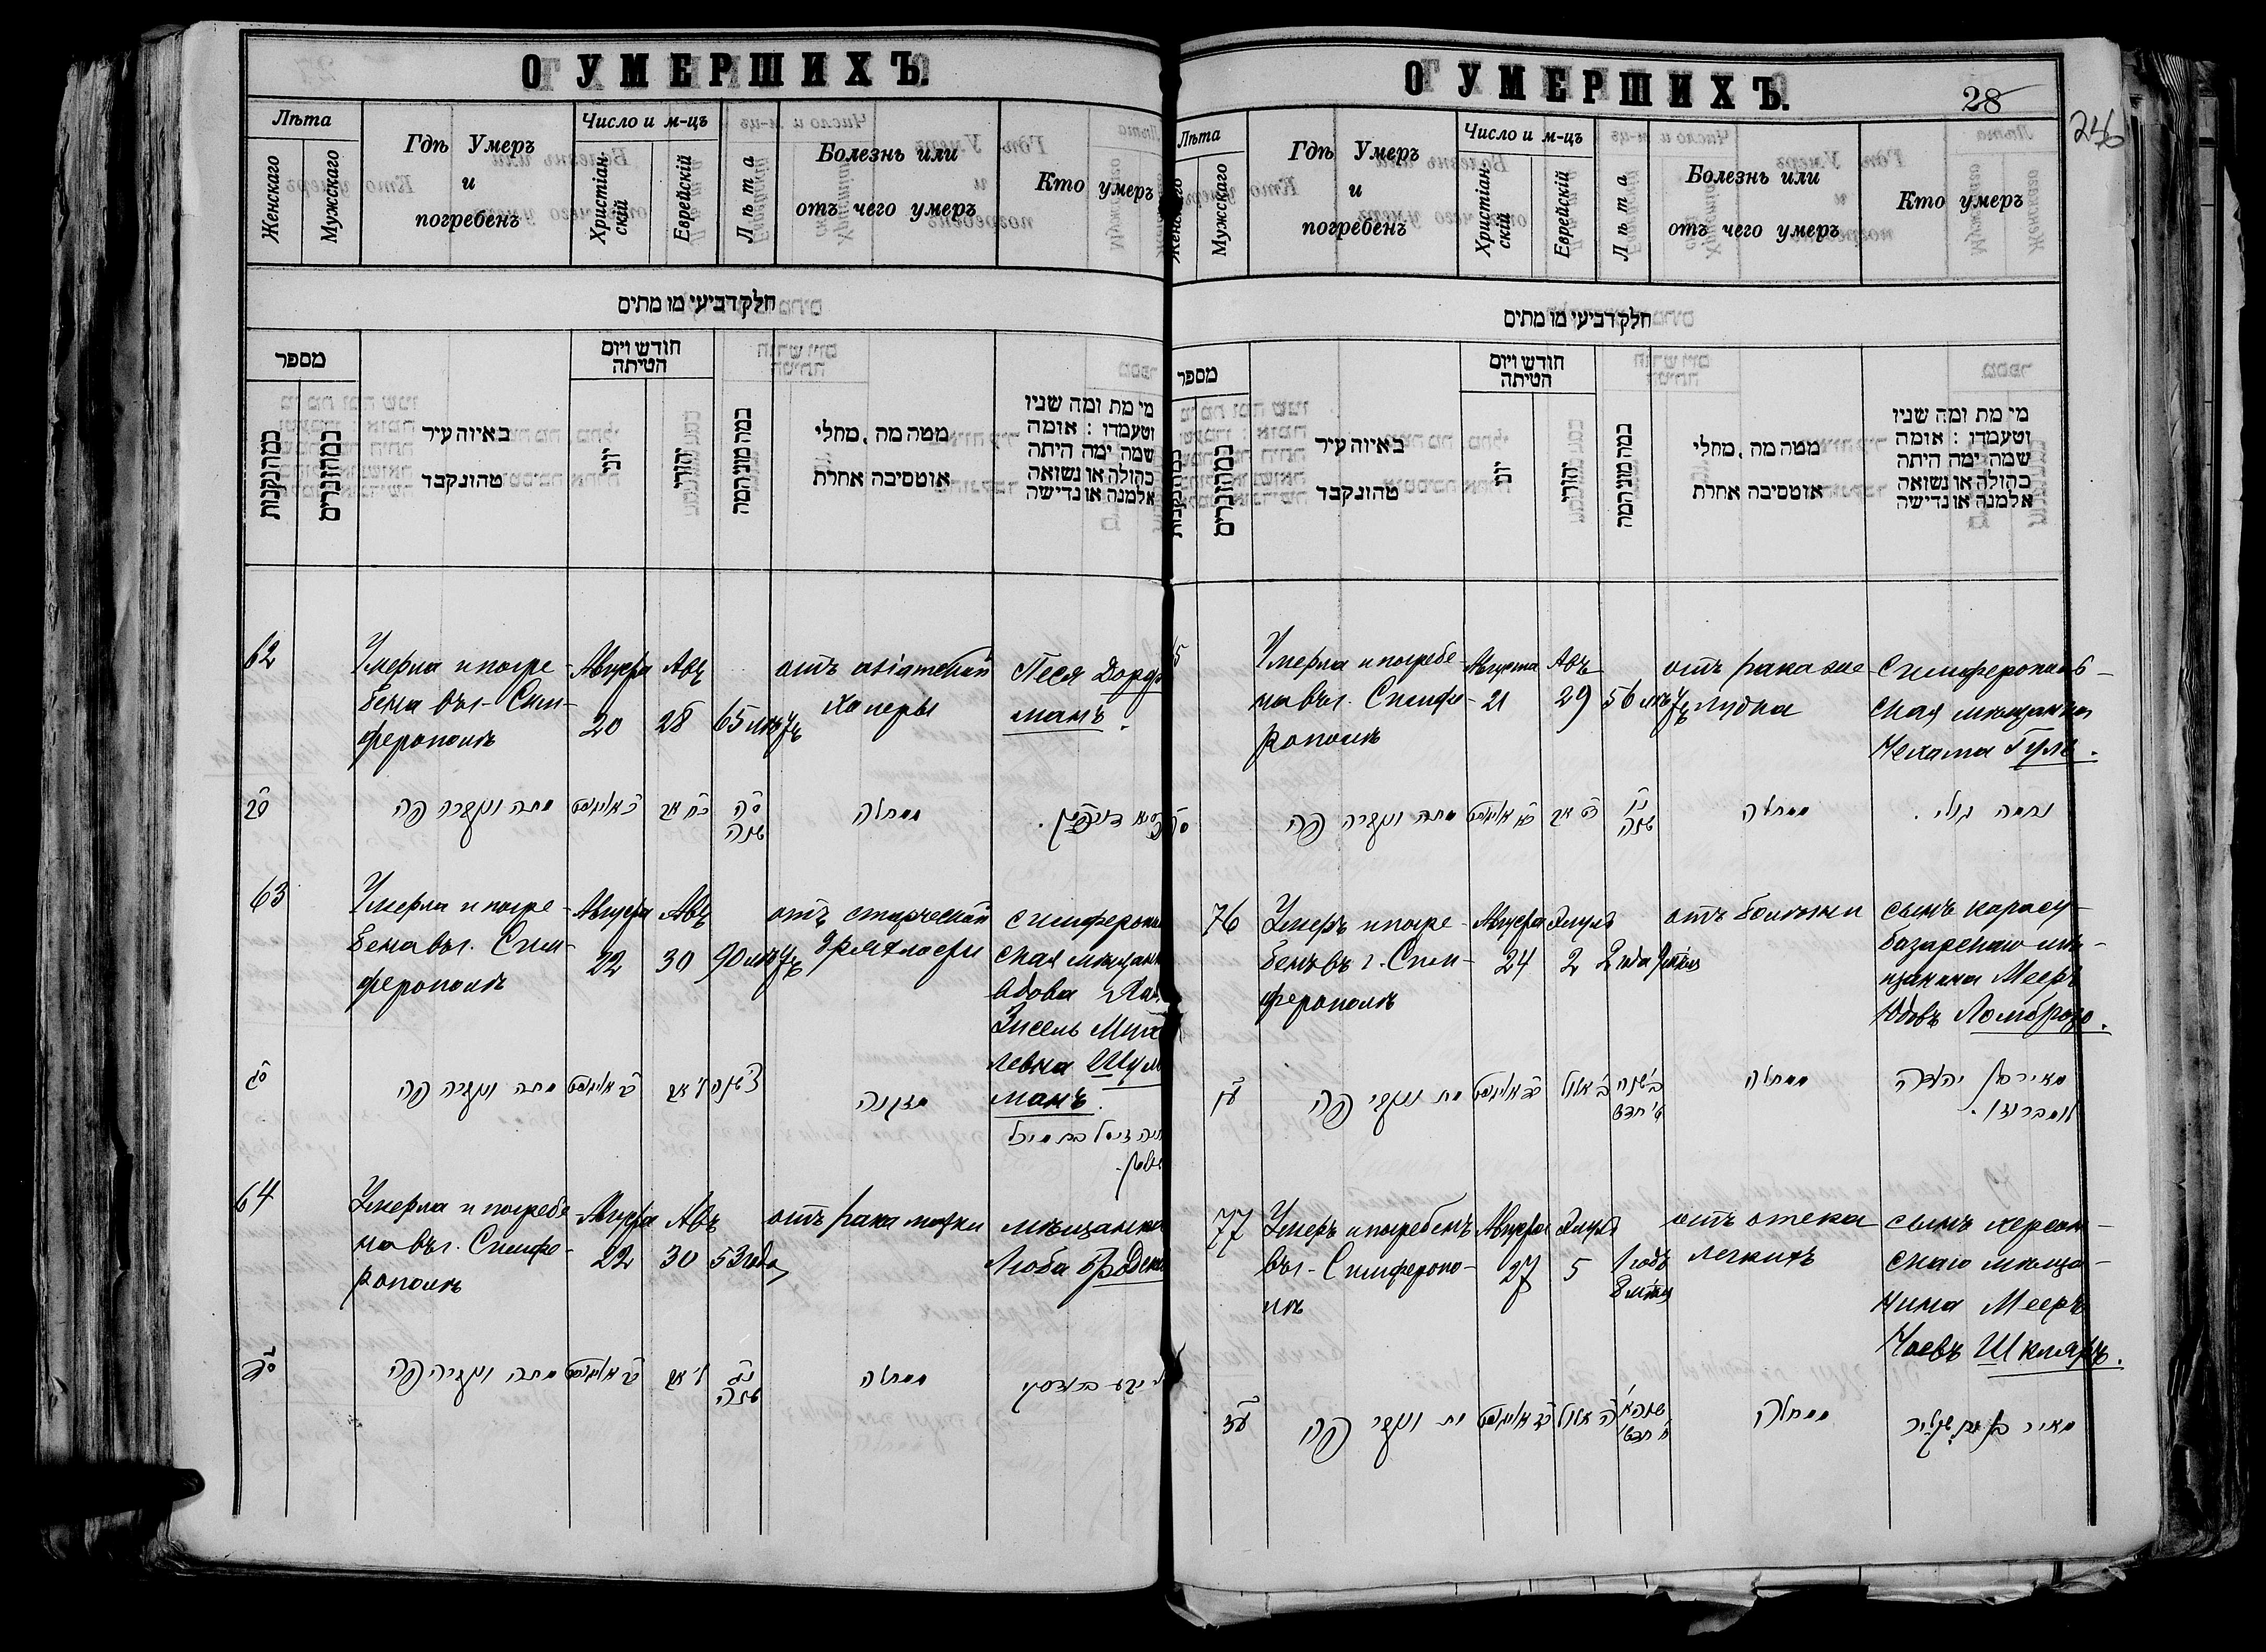 О УМЕРШИХЪ.
Лѣта
Женскаго
Мужскаго
Гдѣ Умеръ
и
погребенъ
Число и м-цъ
Христіан-
скій
Еврейскій
Лѣта
Болезнь или
отъ чего умеръ
Кто умеръ
חלק רביעי מו מתים
מספר
כמהנקבות
כמהזכרים
באיזה עיר
טהונקבד
חודש ויום
הטיתה
יוני
יהודית
כמה מוניהמה
מטה מה, מחלי
אוטסיבה אחרת
מי מת ומה שניו
וטעמדו : אומה
שמה ימה היתה
כהולה או נשואה
אלמנה או נדישה
62
Умерла и погре-
бена въ г. Сим-
ферополѣ
Августа
20
Авъ
28
65 лѣтъ
отъ азіатской
холеры
Песя Дорф
манъ.
סב
מתה ונקברה פה
כ אויגוסט
כח אב
סה
שנה
ממחלה
63
Умерла и погре-
бена въ г. Сим-
ферополѣ
Августа
22
Авъ
30
90 лѣтъ
отъ старческой
дряхлости
симферопол
ская мѣщанк
вдова Хая
Зисель Мих
левна Шуль
манъ.
סג
מתה ונקברה פה
כב אויגוסט
ל' אב
צ' שנה
מזקנה
חיה זיסל בת מיכל
שולמן.
64
Умерла и погребе-
на въ г. Симфе-
рополѣ
Августа
22
Авъ
30
53 года
отъ рака матки
мѣщанка
Люба Бродск
סד
מתה ונקברה פה
כב אויגוסט
ל' אב
נג
שנה
ממחלה
О УМЕРШИХЪ.
28
246
Лѣта
Женскаго
Мужскаго
Гдѣ Умеръ
и
погребенъ
Число и м-цъ
Христіан-
скій
Еврейскій
Лѣта
Болезнь или
отъ чего умеръ
Кто умеръ
חלק רביעי מו מתים
מספר
כמהזכרים
באיזה עיר
טהונקבד
חודש ויום
הטיתה
יוני
יהודית
כמה מוניהמה
מטה מה, מחלי
אוטסיבה אחרת
מי מת ומה שניו
וטעמדו : אומה
שמה ימה היתה
כהולה או נשואה
אלמנה או נדישה
5
Умерла и погребе-
на въ г. Симфе-
рополѣ
Августа
21
Авъ
29
56 лѣтъ
отъ рака же
лудка
Симферополь-
ская мѣщанка
Нехама Гуль.
סה
מתה ונקברה פה
כא אויגוסט
כט אב
נו
שנה
ממחלה
נחמה גולי.
76
Умеръ и погре-
бенъ въ г. Сим-
ферополѣ
Августа
24
Элулъ
2
2 года 9 мѣсяц
отъ болѣзни
сынъ карасу-
базарскаго мѣ-
щанина Мееръ
Юдовъ Ломброзо.
עו
מת ונקבר פה
כד אויגוסט
ב' אלול
ב' שנה
ט' חדש
ממחלה
מאיר בן יהודה
לומברוזו.
77
Умеръ и погребенъ
въ г. Симферопо-
лѣ
Августа
27
Элулъ
5
1 годъ
8 мѣсяц
отъ отека
легкихъ
сынъ херсон-
скаго мѣща-
нина Мееръ
Шкляръ.
עז
מת ונקבר פה
כז אויגוסט
ה' אלול
שנה א'
ח' חדשי
ממחלה